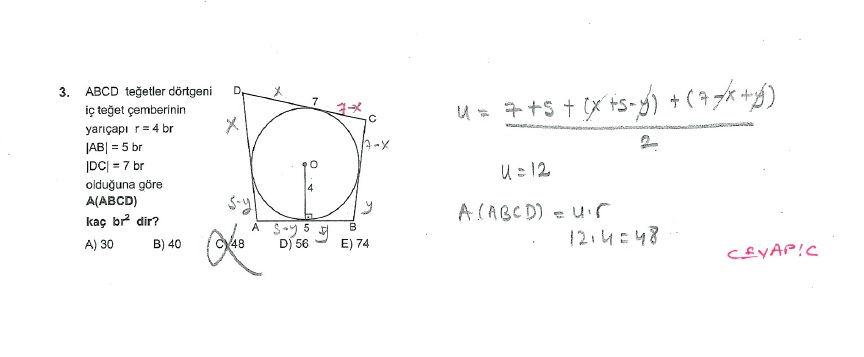 3. ABCD teğetler dörtgeni
iç teğet çemberinin
yarıçapı r = 4 br
|AB| = 5 br
|DC| = 7 br
olduğuna göre
A(ABCD)
kaç br² dir?
A) 30 B) 40 C) 48 D) 56 E) 74
D x 7 7-x C
x
7-x
O
4
5-y y
A 5-y 5 y B
u = 7+5+(x+5-y)+(7-x+y)
2
u=12
A(ABCD) = u.r
12.4=48
CEVAP:C